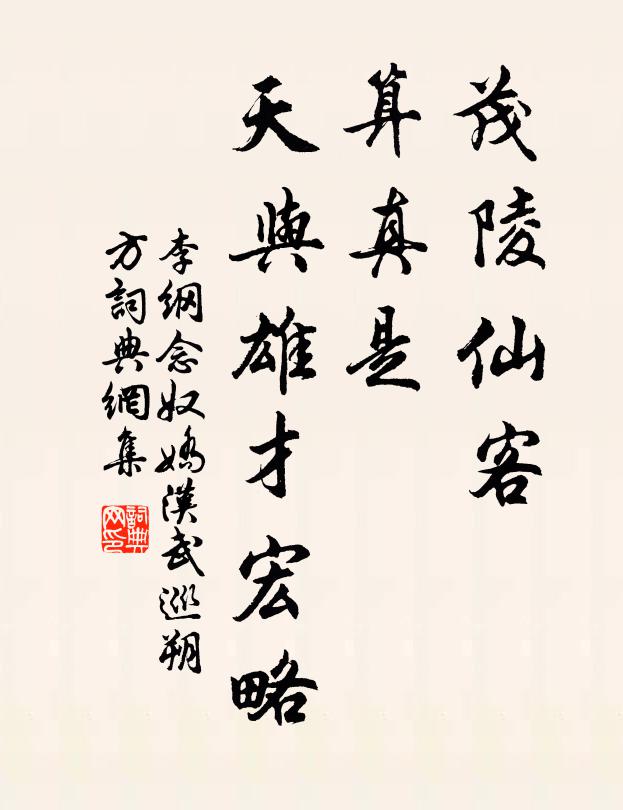 茂陵仙客
算真是
天與雄才宏略
李綱念奴嬌漢武巡朔
方詞典網集
詞典
网印